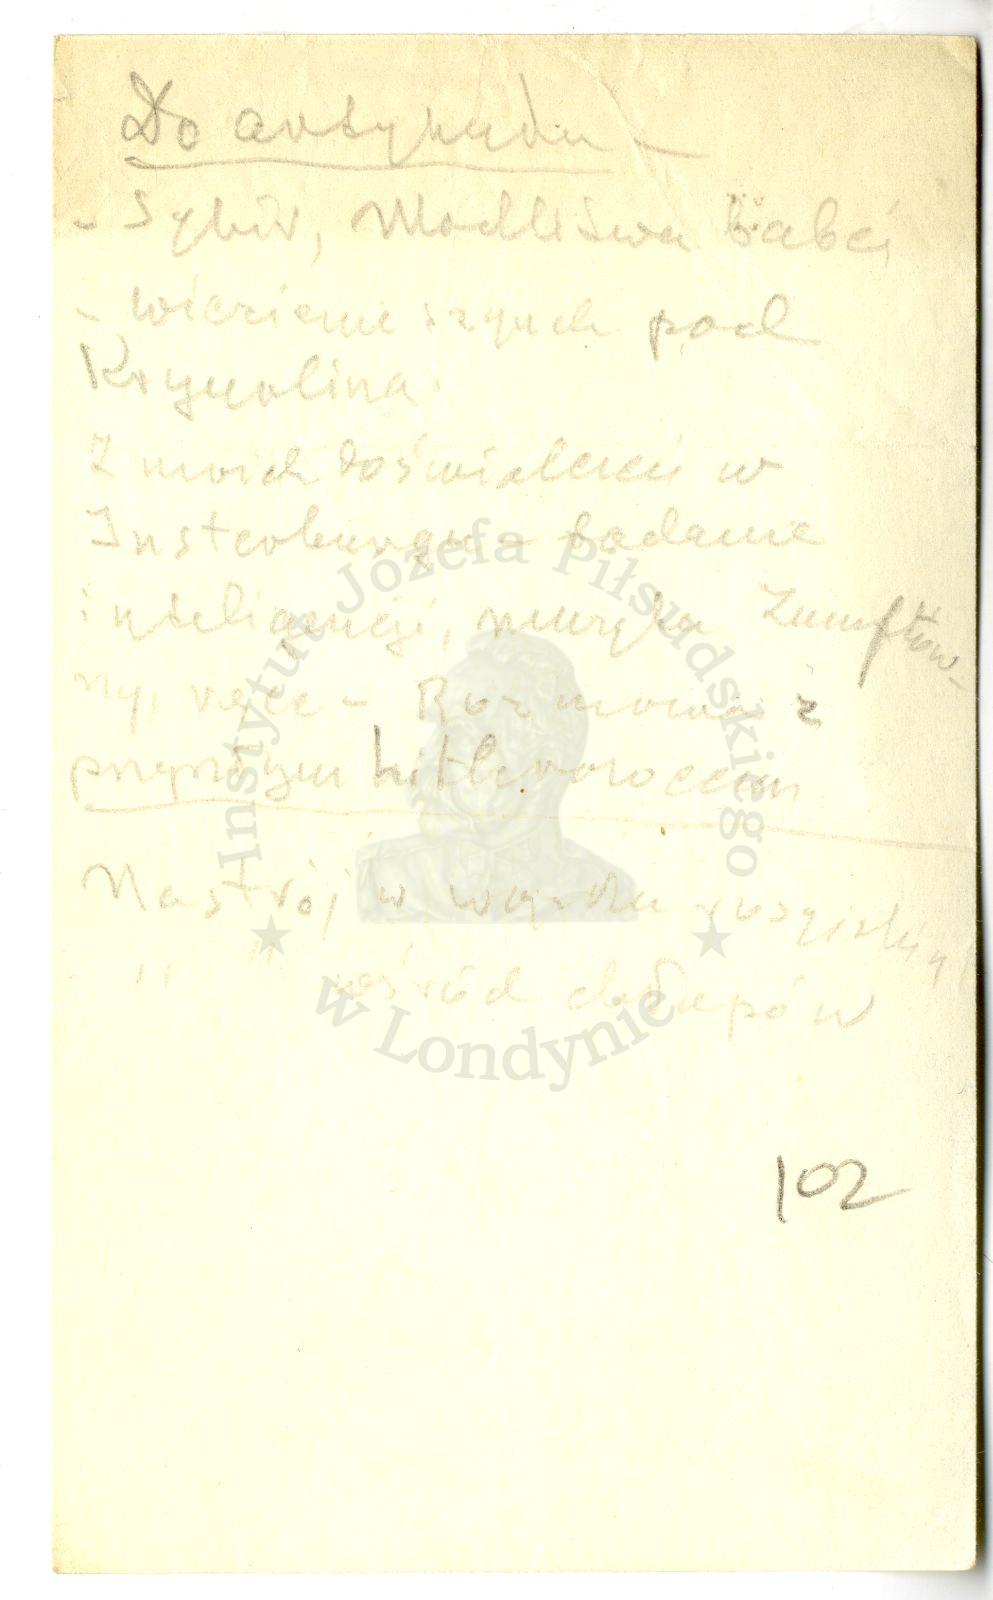 Do artykułu —
- Sybir, Modlitwa babci
- wiezienie pod
Krynolina.
Z moich doświadczeń w
Insterburgu - badanie
inteligencji, muzyka
ny, ręce - Rozmowa z
przyszłym hitlerowcem
Nastrój w wojsku rosyjskim
" " wśród chłopów
102
Instytut Józefa Piłsudskiego
w Londynie